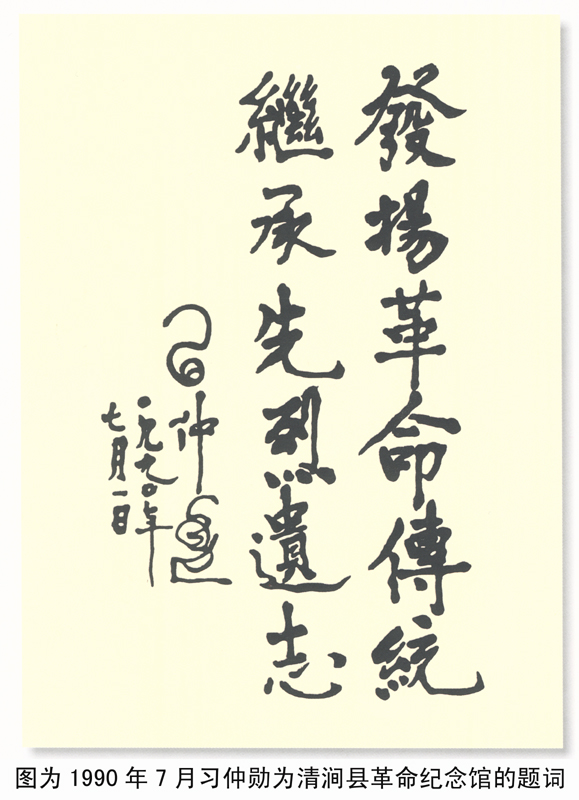 發揚革命傳統
繼承先烈遺志
習仲勛
一九九〇年
七月一日
图为1990年7月习仲勋为清涧县革命纪念馆的题词